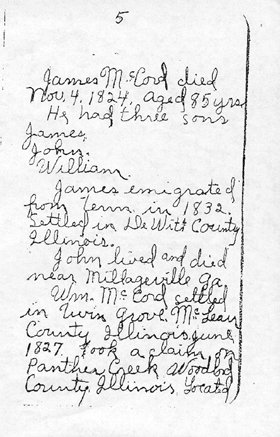 5
James McCord died
Nov. 4, 1824, aged 85 yrs.
He had three sons
James,
John,
William.
James emigrated
from Tenn. in 1832,
Settled in De Witt County,
Illinois.
John lived and died
near Milledgeville Ga
Wm. McCord settled
in Twin Grove, McLean
County Illinois, June,
1827 took a claim on
Panther Creek Woodford
County Illinois, Located